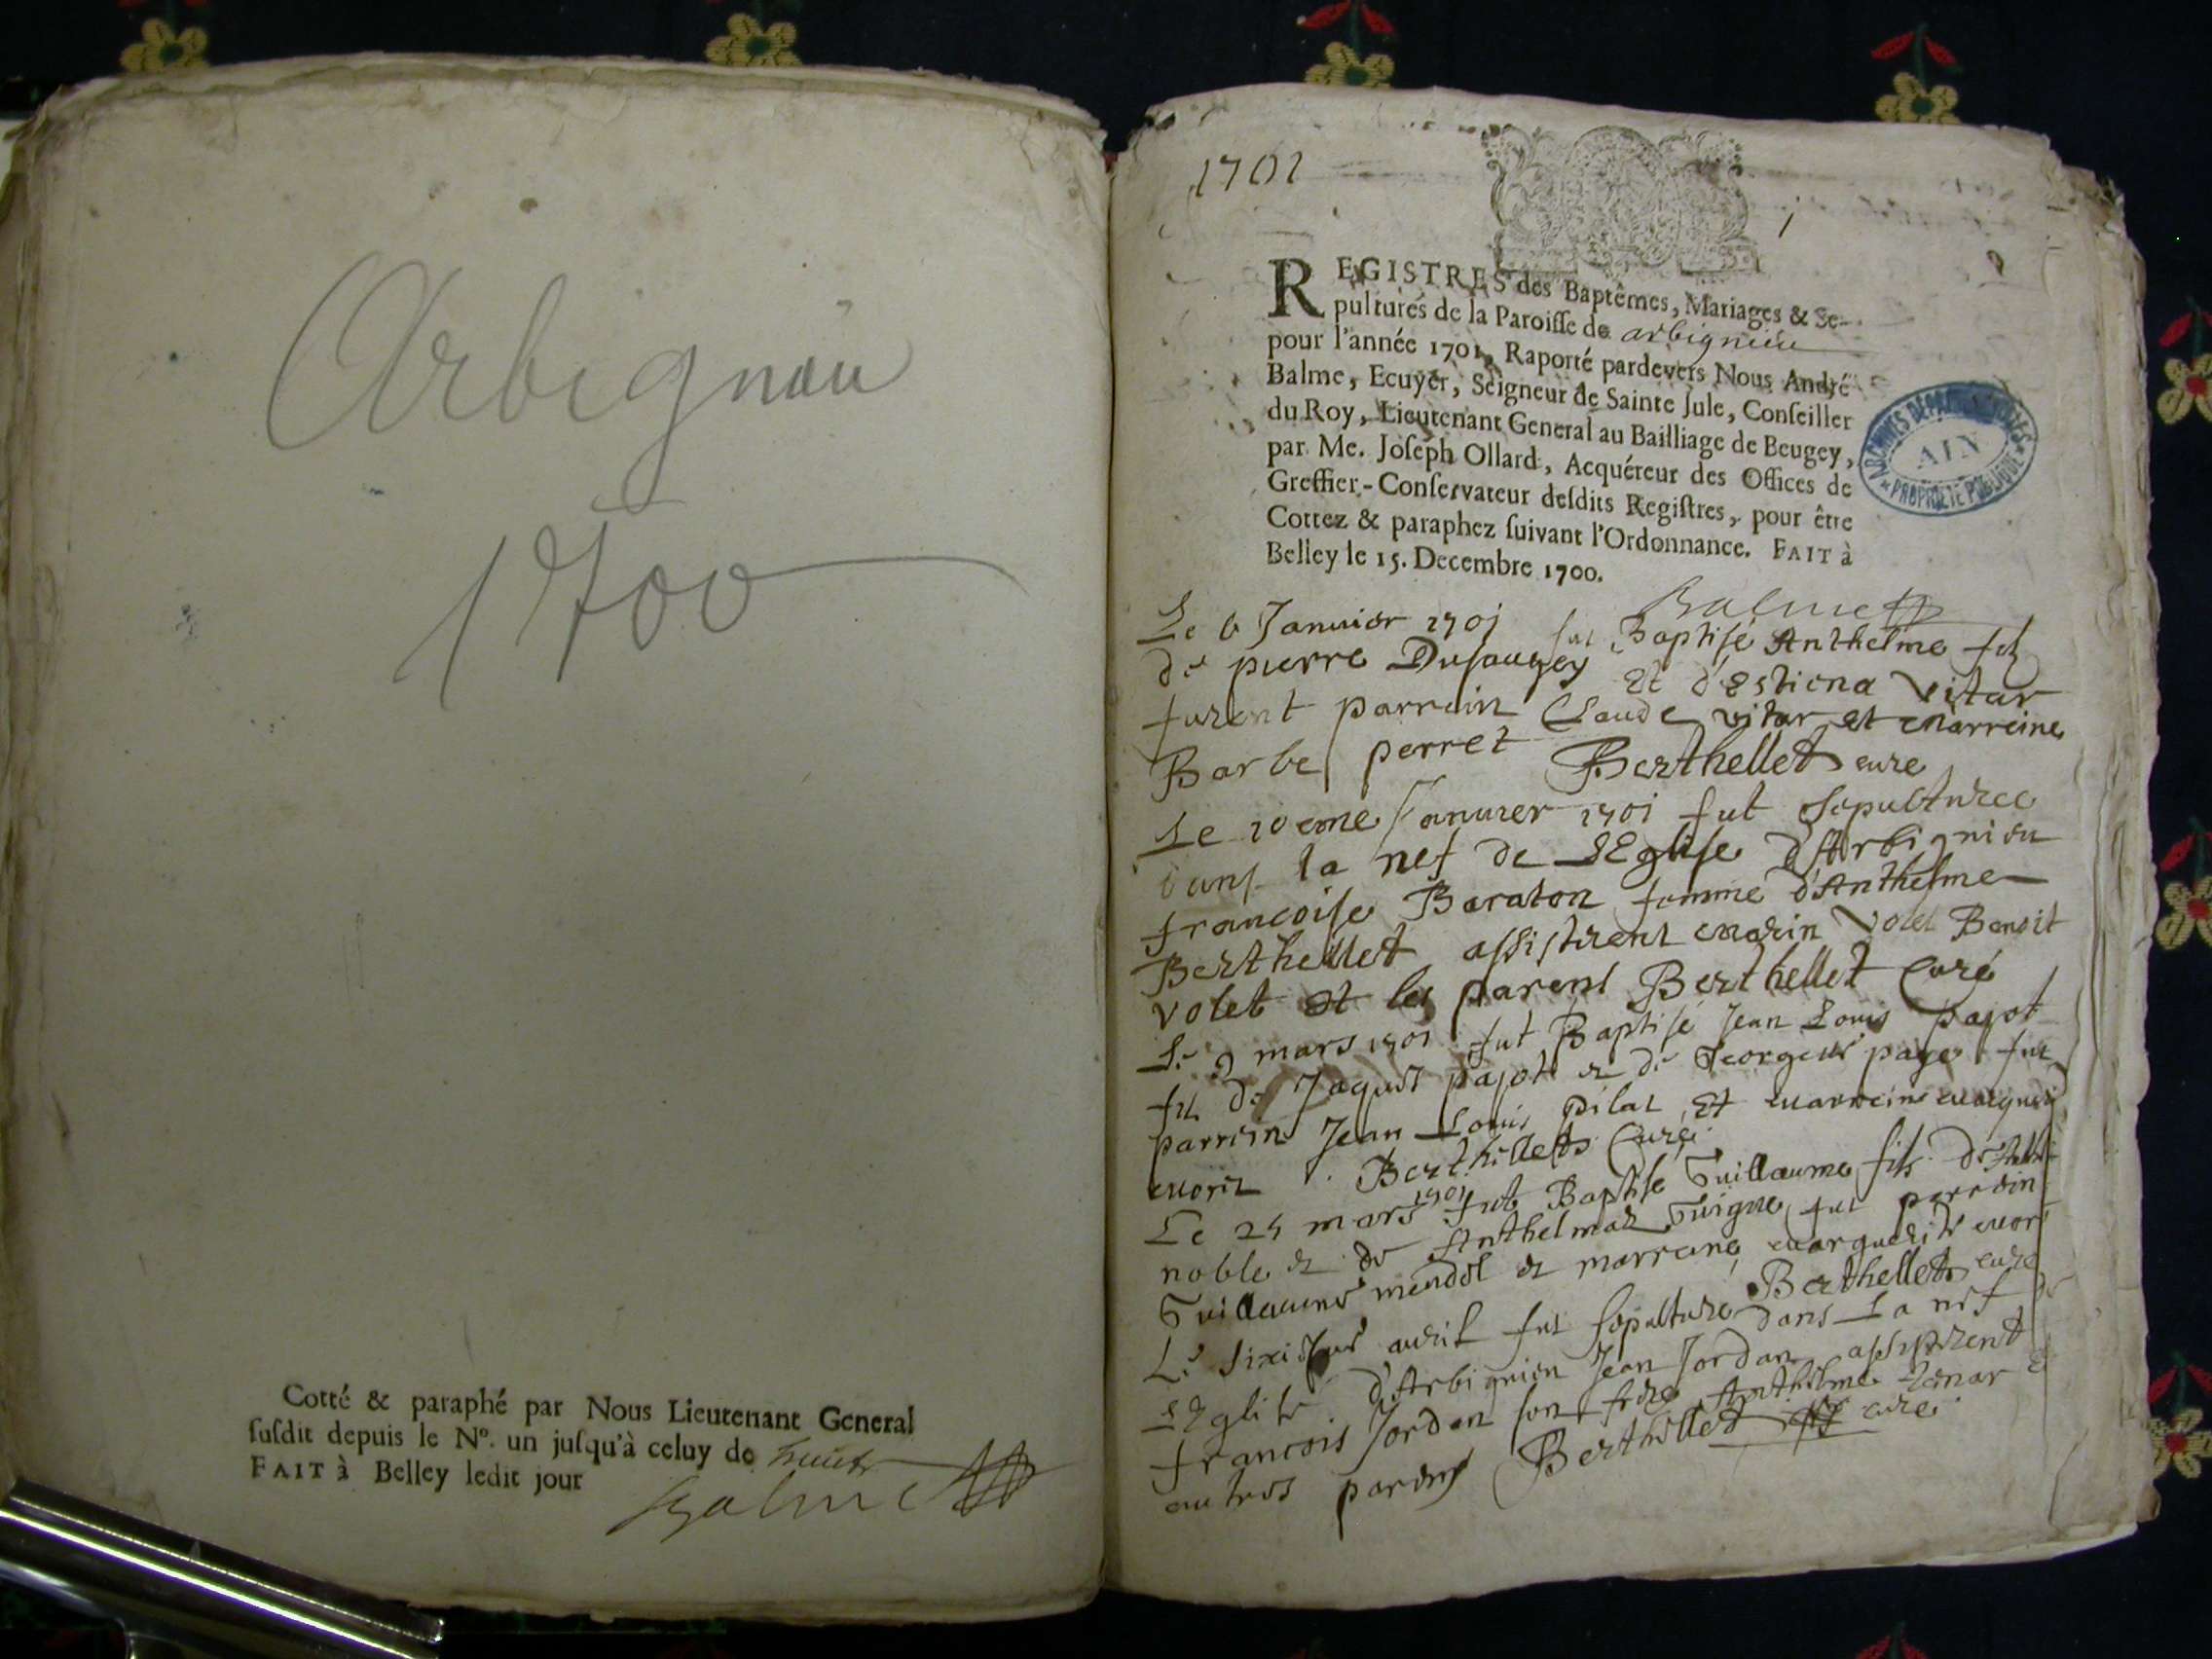 Arbignieu
1700
Cotté & paraphé par Nous Lieutenant General
susdit depuis le N°. un jusqu'à celuy de huict
FAIT à Belley ledit jour
Balme
1701
1
REGISTRES des Baptêmes, Mariages & Se-
pultures de la Paroisse de arbignieu
pour l'année 1701, Raporté pardevers Nous André
Balme, Ecuyer, Seigneur de Sainte Jule, Conseiller
du Roy, Lieutenant General au Bailliage de Beugey,
par Me. Joseph Ollard, Acquéreur des Offices de
Greffier-Conservateur desdits Registres, pour être
Cottez & paraphez suivant l'Ordonnance. FAIT à
Belley le 15. Decembre 1700.
ARCHIVES DÉPARTEMENTALES
AIN
PROPRIÉTÉ PUBLIQUE
Balme
Le 6 Januier 1701 fut Baptisé Anthelme fils
de pierre Dusaugey Et d'Estiena Vitar
furent parrain Claude vitar et Marreine
Barbe perret Berthellet cure
Le 10eme Januier 1701 fut sepulturee
dans la nef de LEglise d'Arbignieu
francoise Baraton femme d'Anthelme
Berthellet assistirent Marin Volet Benoit
volet et les parens Berthellet Curé
Le 9 mars 1701 fut Baptisé Jean Louis pajot
fils de Jaques pajot et de Georgeue page fut
parrein Jean Louis pilat Et marreine
Berthellet Curé
Le 25 mars 1701 fut Baptisé Guillaume fils
noble et de Anthelmaz Guigue fut parrain
Guillaume et marreine marguerite
Berthellet cure
Le sixieme auril fut sepulturé dans La nef de
LEglise d'Arbignieu Jean Jordan assistirent
francois Jordan son frere Anthelme et
autres parens Berthellet cure